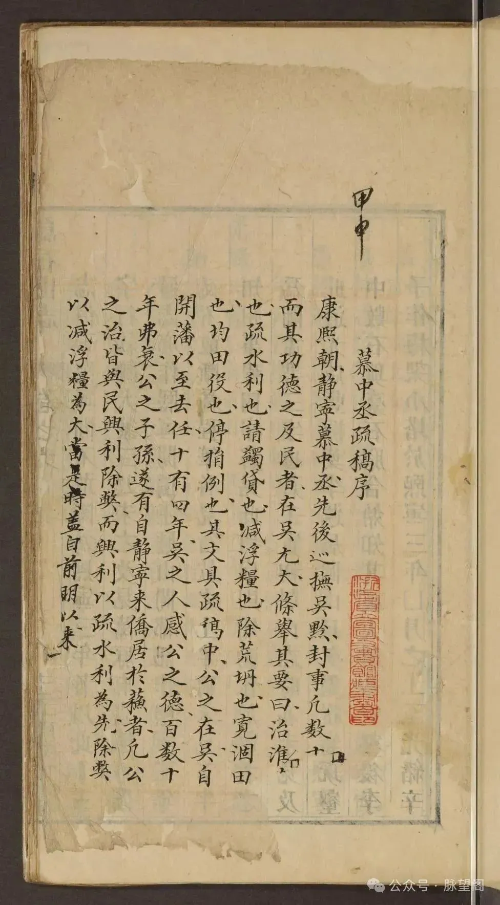 甲申
慕中丞疏稿序
康熙朝靜寧慕中丞先後巡撫吳黔封事凡數十
而其功德之及民者在吳尤大條舉其要曰治淮
也疏水利也請蠲貸也減浮糧也除荒坍也寬涸田
也均田役也停捐例也其文具疏稿中公之在吳自
開藩以至去任十有四年吳之人感公之德百數十
年弗衰公之子孫遂有自靜寧來僑居於蘇者凡公
之治皆與民興利除獘而興利以疏水利為先除獘
以減浮糧為大當是時蓋自前明以來
公众号 · 脉望阁